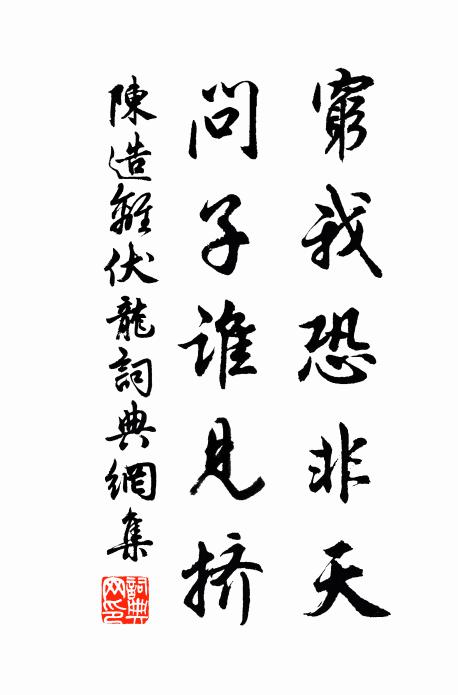 窮我恐非天
問子誰見挤
陳造離伏龍詞典網集
詞典网印